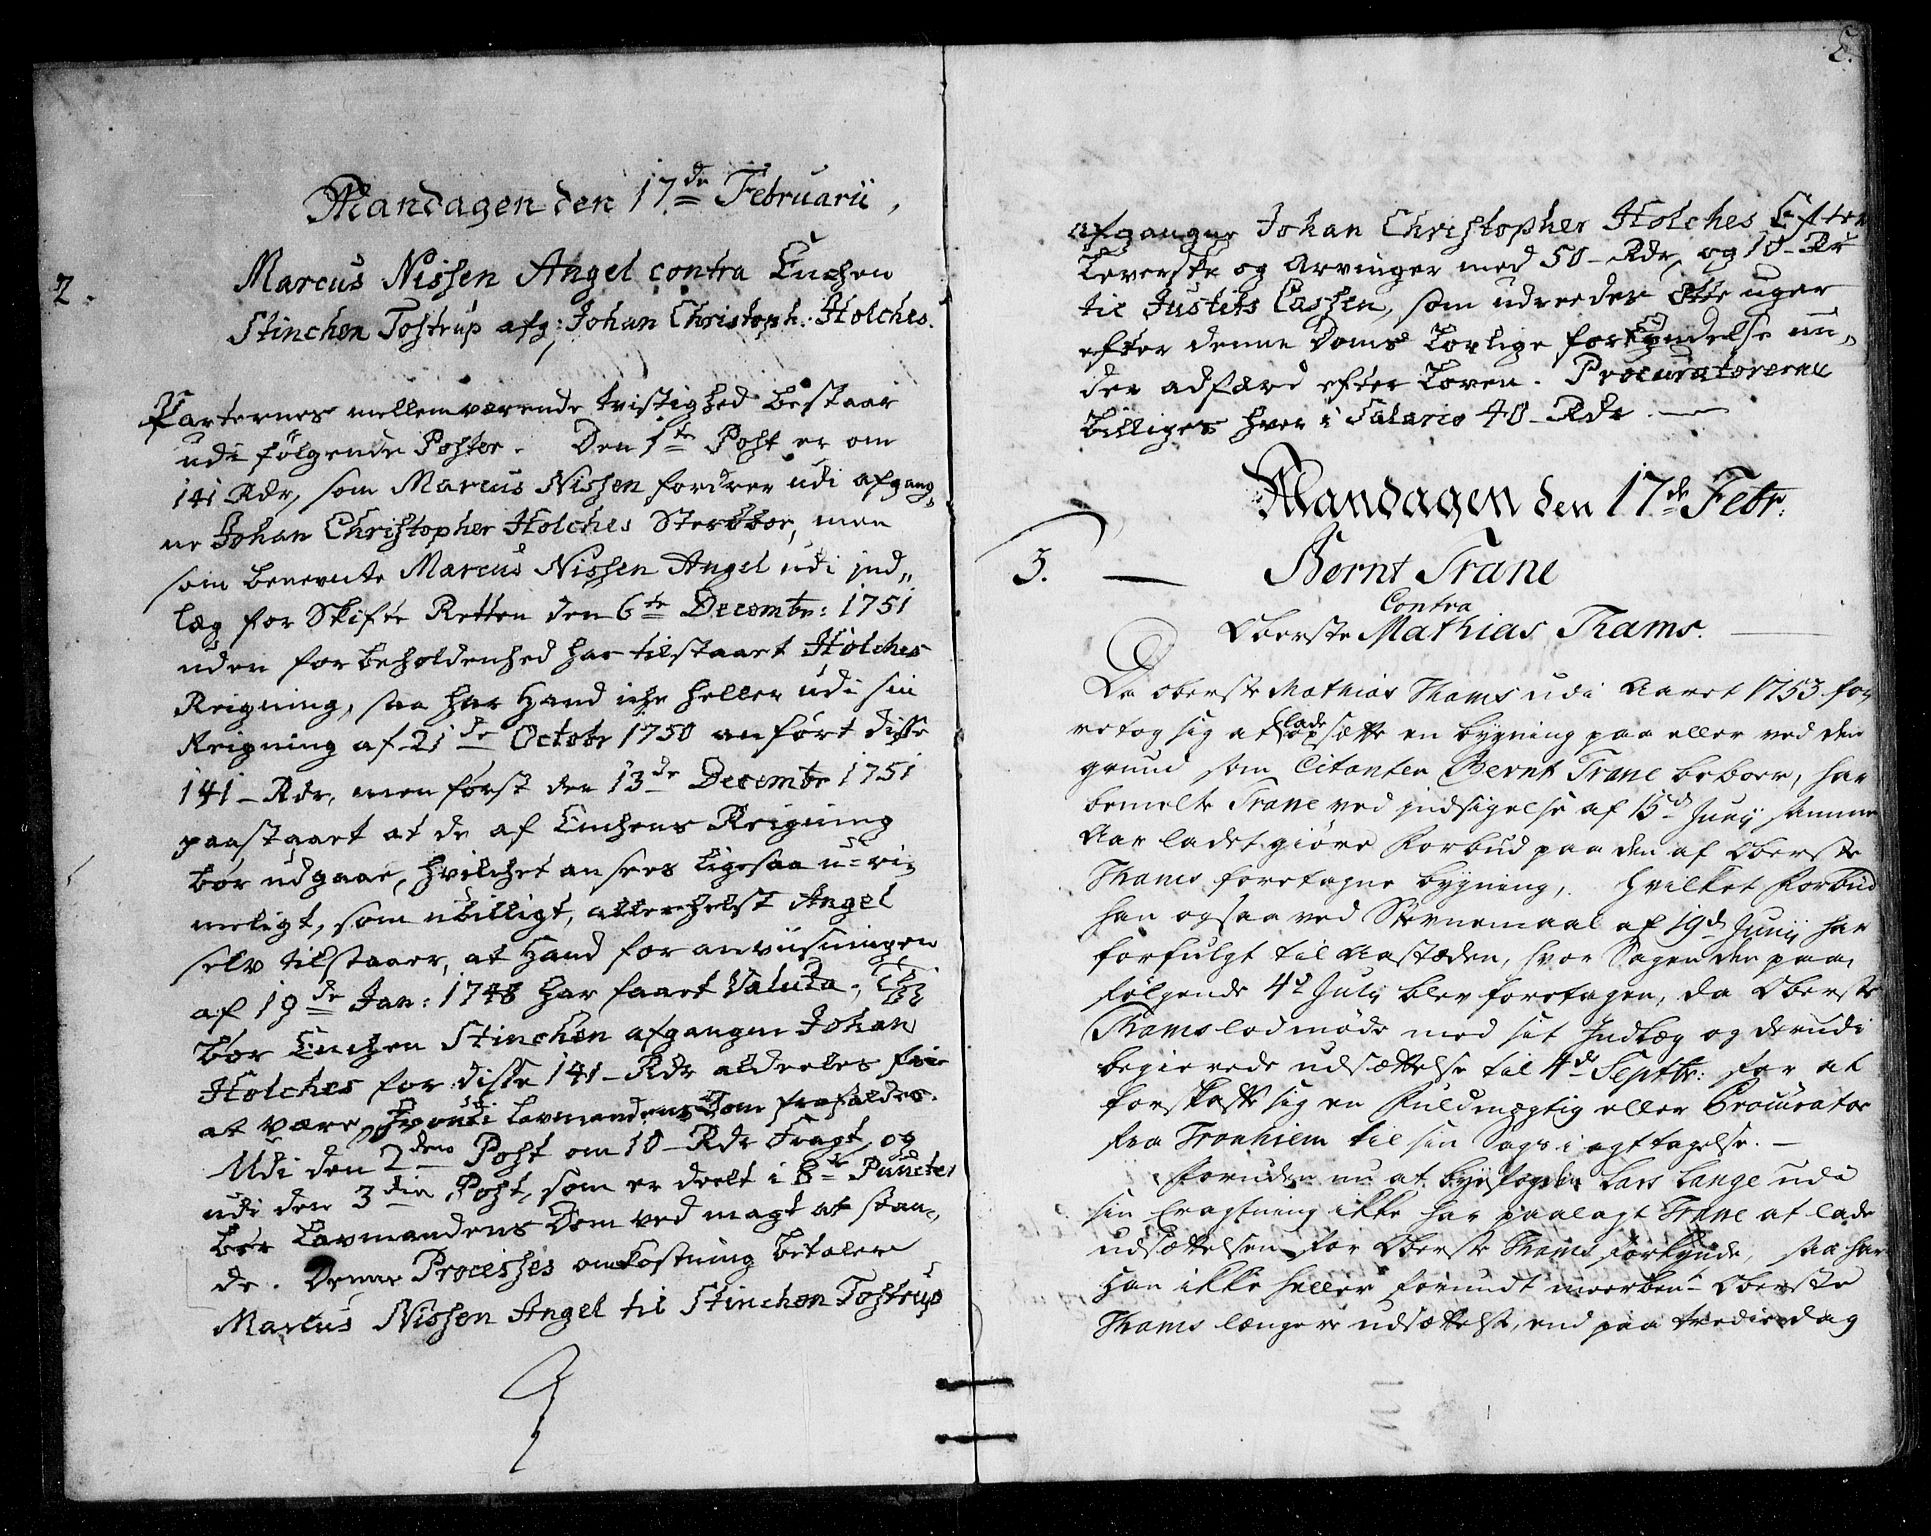 Mandagen den 17de Februarii,
2.
Marcus Nissen Angel contra Enchen
Stinchen Tostrup afg: Johan Christoph: Holches.
Parternes mellemværende tvistighed bestaar
udi følgende Poster. Den 1te Post er om
141 Rdr, som Marcus Nissen fordrer udi afgang„
ne Johan Christopher Holches Sterbboe, men
som benevnte Marcus Nissen Angel udi ind„
læg for Skifte Retten den 6te Decembr: 1751
uden forbeholdenhed har tilstaaet Holches
Reigning, saa har Hand iche heller udi sin
Reigning af 21de Octobr 1750 anført disse
141 - Rdr, men først den 13de Decembr 1751
paastaaet at de af Enchens Reigning
bør udgaae, hvilchet ansees ligesaa u-ri,
meligt, som ubilligt, allerhelst Angel
selv tilstaaer, at Hand for anviisningen
af 19de Jan: 1748 har faaet Valuta, Thi
bør Enchen Stinchen afgangen Johan
Holches for disse 141 - Rdr aldeeles frie
at være, hvorudi Lavmandens Dom frafaldes.
Udi den 2den Post om 10 - Rdr Fragt, og
udi den 3die Post, som er deelt i 8te Puncter
bør Lavmandens Dom ved magt at staan„
de. Denne Processes omkostning betaler
Marcus Nissen Angel til Stinchen Tostrup
2.
afgangne Johan Christopher Holches Efter
leverske og Arvinger med 50 - Rdr, og 10 - Rdr
til Justits Cassen, som udreedes otte uger
efter denne Doms Lovlige forkyndelse un„
der adfærd efter Loven. Procuratorerne
billiges hver i Salario 40 - Rdr.
Mandagen den 17de Febr:
3.
Bernt Trane
Contra
Oberste Mathias Thams.
Da oberste Mathias Thams udi Aaret 1753 for,
retog sig at lade opsætte en bygning paa eller ved den
grund som Citanten Bernt Trane beboer, har
bemelte Trane ved indsigelse af 15de Junij samme
Aar ladet giøre Forbud paa den af Oberste
Thams foretagne bygning, hvilket Forbud
han ogsaa ved Stevnemaal af 19de Junij har
forfulgt til Aastæden, hvor Sagen den paa,
følgende 4de Julij blev foretagen, da Oberste
Thams lod møde med sit Indlæg og derudi
begierede udsættelse til 4de Septbr: for at
forskaffe sig en Fuldmægtig eller Procurator
fra Tronhiem til sin Sags i agttagelse. -
Foruden nu at byefogden Lars Lange udi
sin Eragtning ikke har paalagt Trane at lade
udsættelsen for Oberste Thams forkynde, saa har
Han ikke heller forundt meerben: Oberste
Thams længere udsættelse, end paa tredie dag